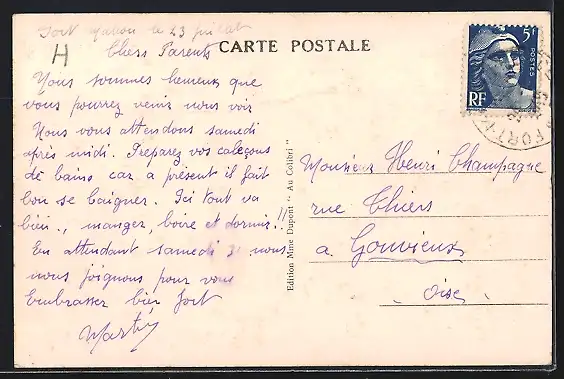 Fort Mahon le 23 juillet
H
Chers Parents
CARTE POSTALE
Nous sommes heureux que
vous pourrez venir nous voir
Nous vous attendons samedi
après midi. Preparez vos caleçons
de bains car a présent il fait
bon se baigner. Ici tout va
bien., manger, boire et dormir!!
En attendant samedi nous
nous joignons pour vous
Embrasser bien fort
Edition Mme Dupont "Au Colibri"
5F
POSTES
RF
FORT-M
Monsieur Henri Champagne
rue Thiers
a Gouvieux
Oise